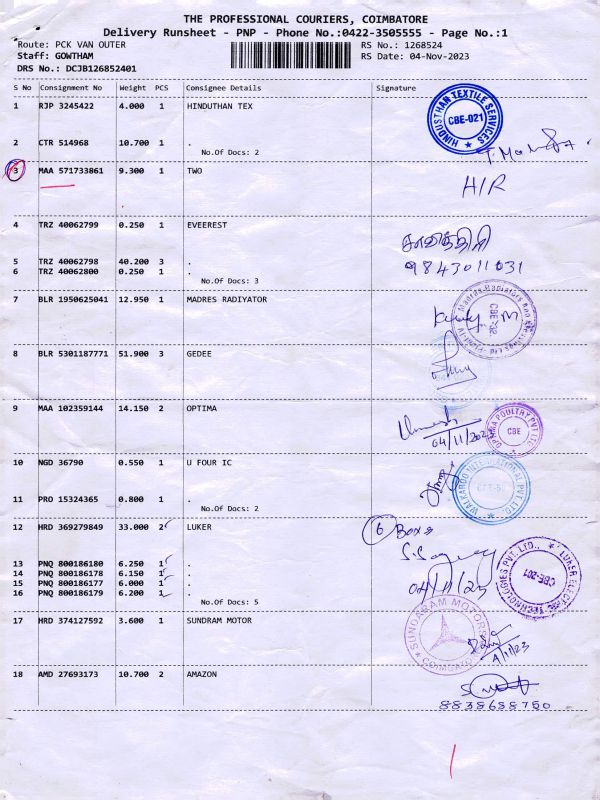 THE PROFESSIONAL COURIERS, COIMBATORE
Delivery Runsheet - PNP - Phone No.:0422-3505555 - Page No.:1
Route: PCK VAN OUTER RS No.: 1268524
Staff: GOWTHAM RS Date: 04-Nov-2023
DRS No.: DCJB126852401
S No Consignment No Weight PCS Consignee Details Signature
1 RJP 3245422 4.000 1 HINDUTHAN TEX
HINDUSTHAN TEXTILE SERVICES
CBE-021
2 CTR 514968 10.700 1 .
No.Of Docs: 2
3 MAA 571733861 9.300 1 TWO
H/R
4 TRZ 40062799 0.250 1 EVEEREST
சாவித்திரி
5 TRZ 40062798 40.200 3 .
9843011031
6 TRZ 40062800 0.250 1 .
No.Of Docs: 3
7 BLR 1950625041 12.950 1 MADRES RADIYATOR
8 BLR 5301187771 51.900 3 GEDEE
9 MAA 102359144 14.150 2 OPTIMA
04/11/2023
POULTRY PVT LTD
CBE
10 NGD 36790 0.550 1 U FOUR IC
11 PRO 15324365 0.800 1 .
No.Of Docs: 2
12 HRD 369279849 33.000 2 LUKER
6 Box
13 PNQ 800186180 6.250 1 .
14 PNQ 800186178 6.150 1 .
15 PNQ 800186177 6.000 1 .
16 PNQ 800186179 6.200 1 .
No.Of Docs: 5
04/11/23
LUKER ELECTRIC TECHNOLOGIES PVT. LTD.,
CBE-201
17 HRD 374127592 3.600 1 SUNDRAM MOTOR
SUNDARAM MOTORS
4/11/23
18 AMD 27693173 10.700 2 AMAZON
8838688750